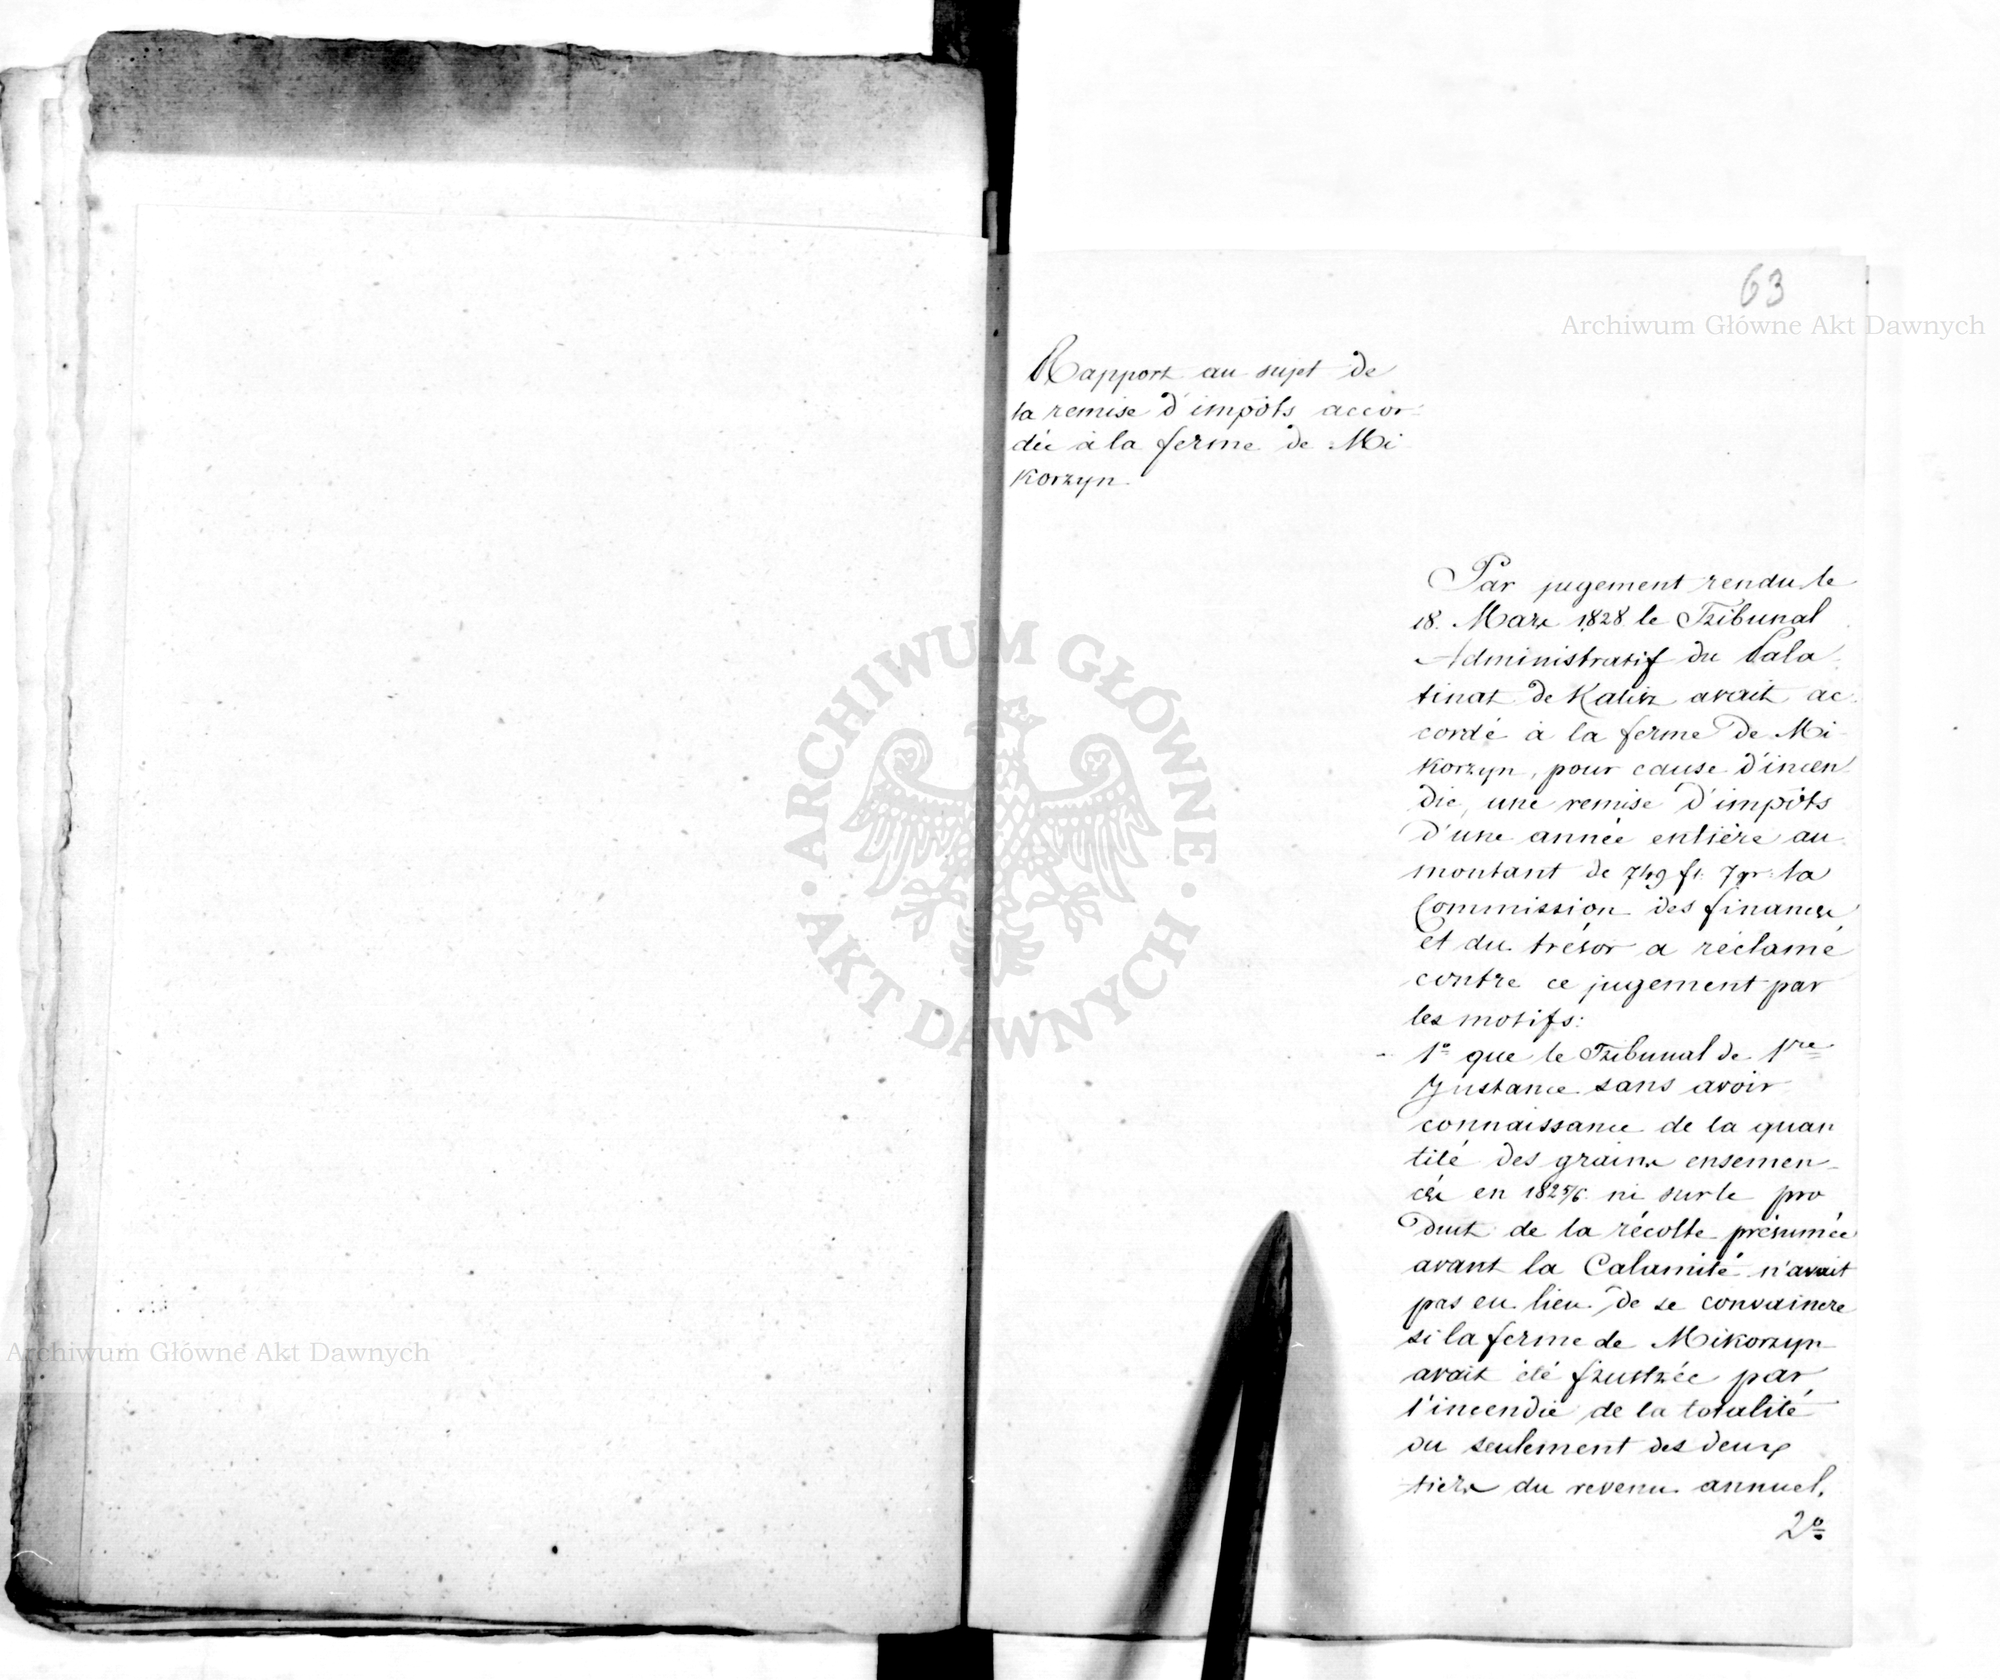 63
Archiwum Główne Akt Dawnych
Rapport au sujet de
la remise d'impôts accor-
dée à la ferme de Mi-
korzyn.
Par jugement rendu le
18. Mars 1828 le Tribunal
Administratif du Pala-
tinat de Kalisz avait ac-
cordé à la ferme de Mi-
korzyn, pour cause d'incen-
die, une remise d'impôts
d'une année entière au
montant de 749 fl. 7 gr. la
Commission des finances
et du trésor a réclamé
contre ce jugement par
les motifs:
1º que le Tribunal de 1re
Instance sans avoir
connaissance de la quan
tité des grains ensemen-
cés en 1825/6 ni sur le pro
duit de la récolte présumée
avant la Calamité n'avait
pas eu lieu de se convaincre
si la ferme de Mikorzyn
avait été frustrée par
l'incendie de la totalité
ou seulement des deux
tiers du revenu annuel.
2º
ARCHIWUM GŁÓWNE · AKT DAWNYCH ·
Archiwum Główne Akt Dawnych